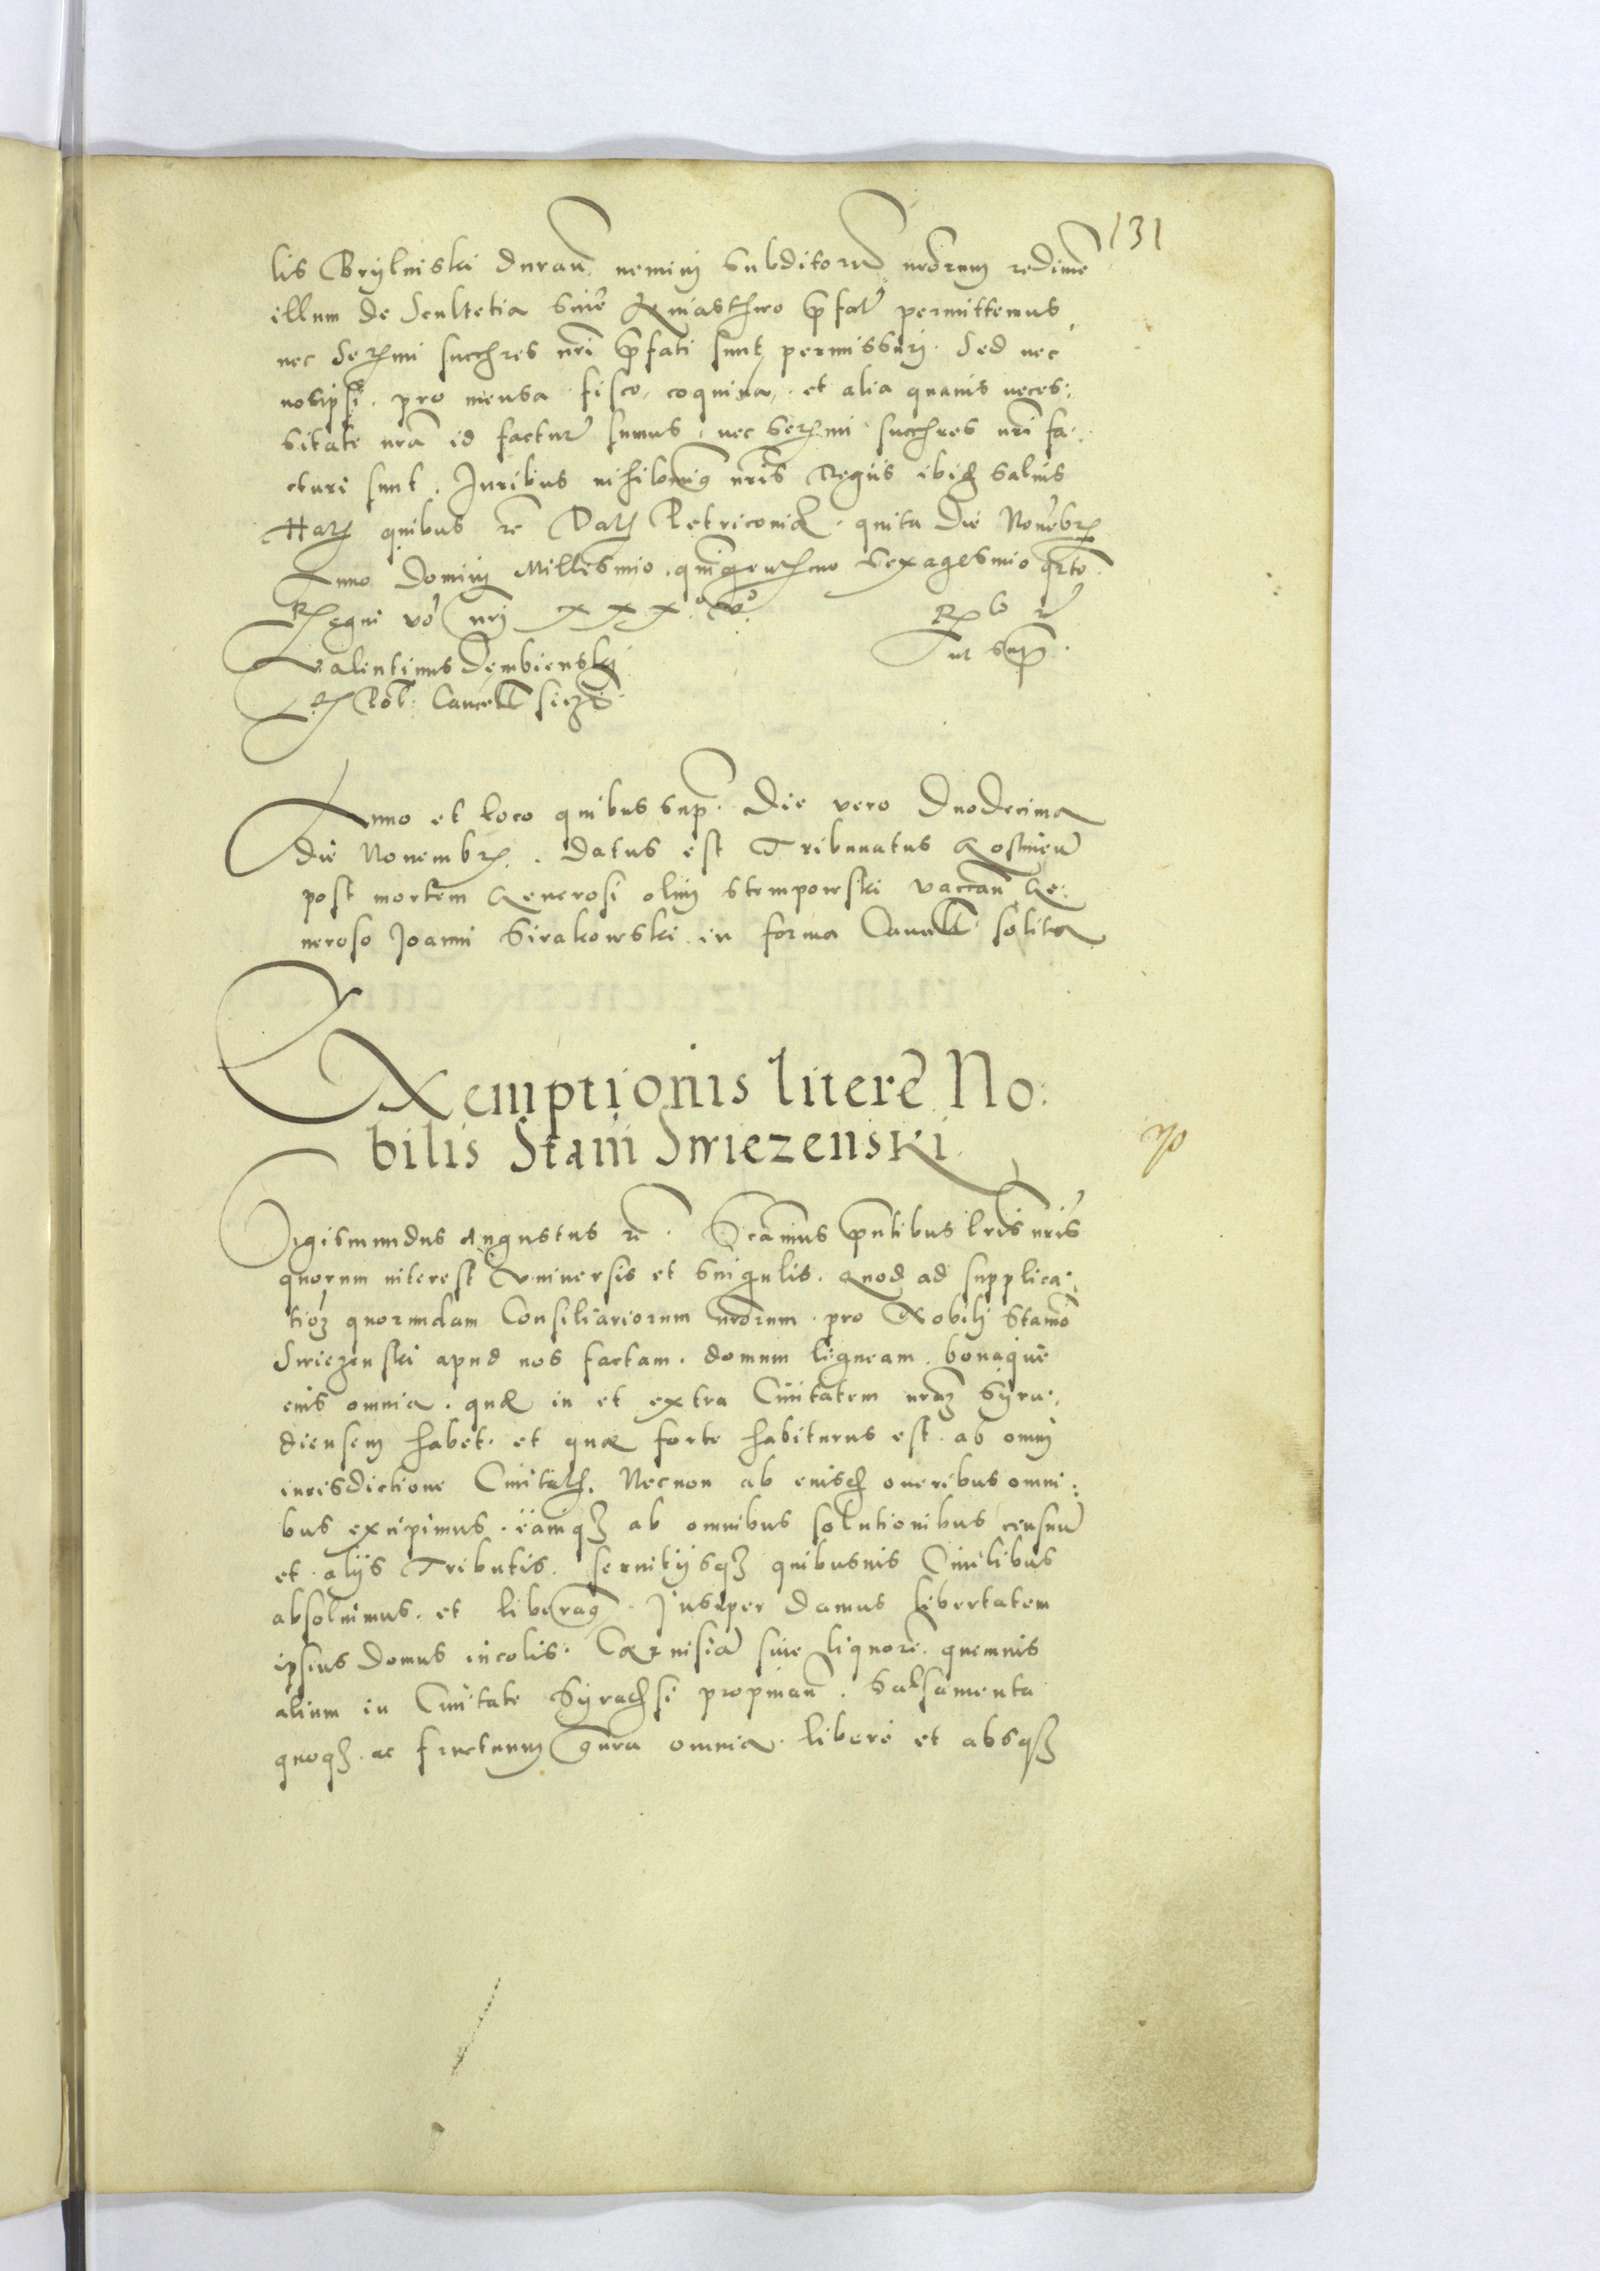 131
lis Brylniski duraň nemini subditorũ nrōrum redimē
illum de Scultetia sive Kniasthwo p̃fatˀ permittemus
nec Serᵐⁱ succres nr̃i p̃fati sunt permissuri. Sed nec
nosipsi. pro mensa fisco, coquina, et alia quavis neces:
sitate nrã id facturˀ sumus, nec serᵐⁱ succres nr̃i fa:
cturi sunt. Juribus nihilomiꝰ nr̃is Regiis ibiđ salvis
Harꝫ quibus rē Datꝫ Petricoviæ. quita die Novēbrꝫ
Anno Domini Millesimo, quingentesimo sexagesimo qrto.
Regni vo nri XXXᵒ Vᵒ
Valentinus Dembiensky
R Pol: Cancell ssczs
Ut sup̃.
Anno et loco quibus sup̃. Die vero Duodecima
die Novembrꝫ. Datus est Tribunatus
post mortem Generosi olim Stempowski vaccañ Ge:
neroso Joanni Sirakowski in forma Cancell: solita
Exemptionis literē No:
bilis Stanī Swiezenski.
Sigismundus Augustus rē. Sig̃camus p̃ntibus lr̃is nr̃is
quorum interest universis et singulis. Quod ad supplica:
tioꝫ quorundam Consiliariorum nrōrum. pro Nobili Stanīo
Swiezenski apud nos factam. domum ligneam. bonaque
eius omnia. quæ in et extra Civitatem nrãꝫ Syra:
diensem habet. et quæ forte habiturus est. ab omni
iurisdictione Civitatꝫ. Necnon ab eiusđ oneribus omni:
bus excipimus. eamqꝫ ab omnibus solutionibus censuũ
et alijs Tributis. servitijsqꝫ quibusvis Civilibus
absolvimus. et liberamꝰ. Insuper damus libertatem
ipsius domus incolis. Cærvisiã sive liquorē. quemvis
alium in Civitate Syradsi propinañ. Salsamenta
quoqꝫ. ac fructuum gñra omnia. liberè et absqꝫ